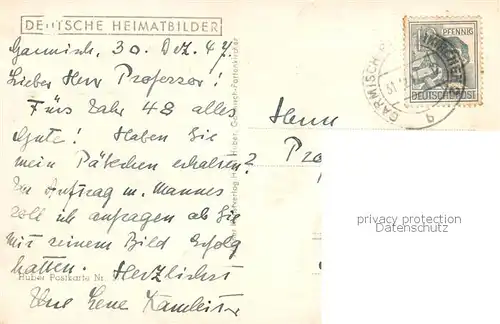 DEUTSCHE HEIMATBILDER
Garmisch, 30. Dez. 47.
Lieber Herr Professor!
Fürs Jahr 48 alles
Gute! Haben Sie
mein Päckchen erhalten?
Im Auftrag m. Mannes
soll ich anfragen ob Sie
mit seinem Bild Erfolg
hatten. Herzlichst
Huber Postkarte Nr.
Ihre Lene
Huber, Garmisch-Partenkirchen
Herrn
Pro
12 PFENNIG
DEUTSCHE POST
GARMISCH-P
b
privacy protection
Datenschutz